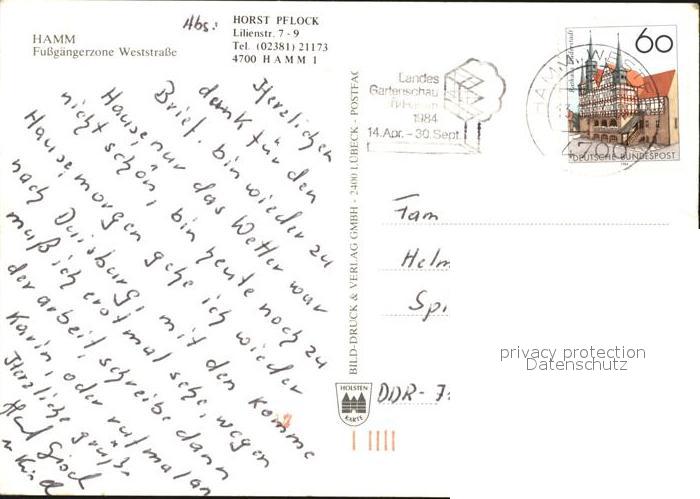 HAMM
Fußgängerzone Weststraße
Abs:
HORST PFLOCK
Lilienstr. 7 - 9
Tel. (02381) 21173
4700 HAMM 1
Herzlichen
dank für den
Brief. bin wieder zu
Hause, nur das Wetter war
nicht schön, bin heute noch zu
Hause, morgen gehe ich wieder
nach Duisburg, mit den komme
muß ich erst mal sehe, wegen
der arbeit, schreibe dann
Karin, oder ruf mal an
Herzliche grüße
BILD-DRUCK & VERLAG GMBH - 2400 LÜBECK - POSTFAC
HOLSTEN
KARTE
Landes
Gartenschau
in Hamm
1984
14.Apr. - 30.Sept.
HAMM, WESTF
4700
60
DEUTSCHE BUNDESPOST
Fam
Helm
Spi
DDR-
privacy protection
Datenschutz